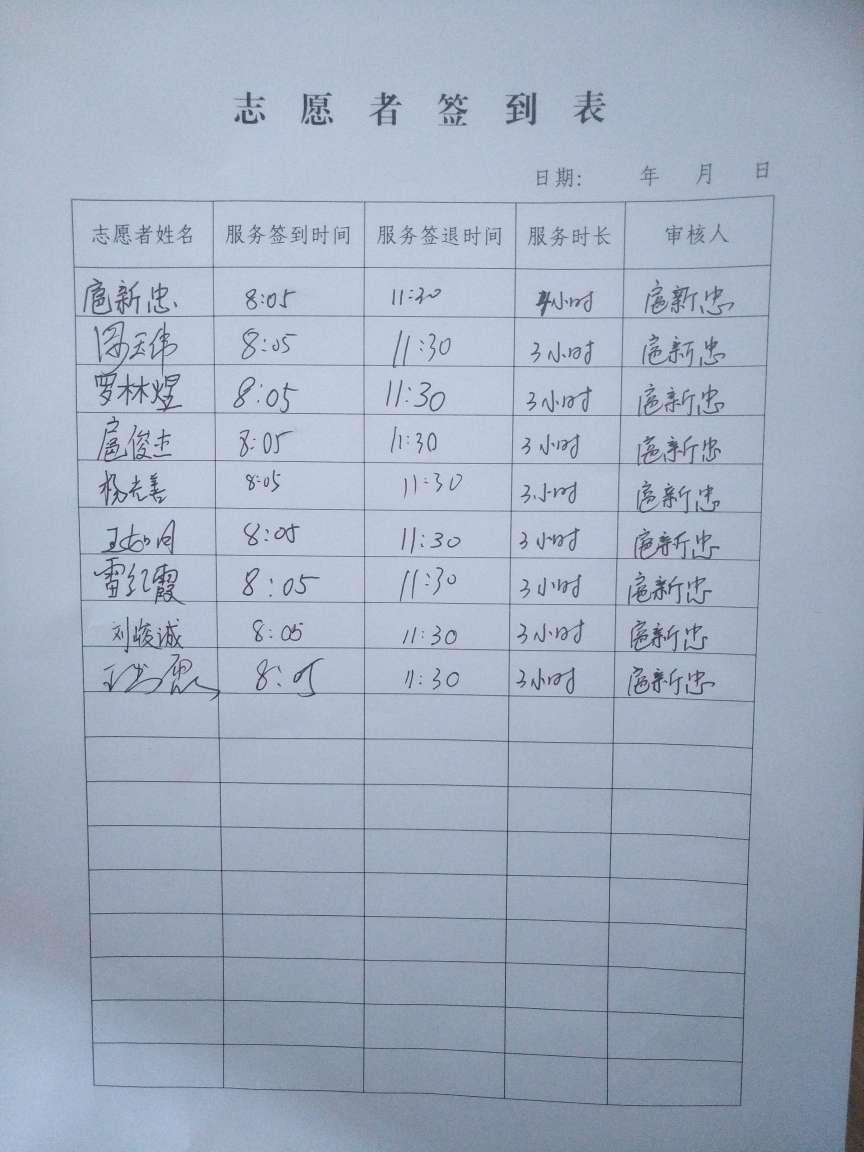 志愿者签到表
日期: 年 月 日
志愿者姓名 服务签到时间 服务签退时间 服务时长 审核人
扈新忠 8:05 11:30 小时 扈新忠
8:05 11:30 3小时 扈新忠
罗林煜 8:05 11:30 3小时 扈新忠
扈俊杰 8:05 11:30 3小时 扈新忠
杨光善 8:05 11:30 3小时 扈新忠
8:05 11:30 3小时 扈新忠
雷红霞 8:05 11:30 3小时 扈新忠
刘骏诚 8:05 11:30 3小时 扈新忠
8:05 11:30 3小时 扈新忠